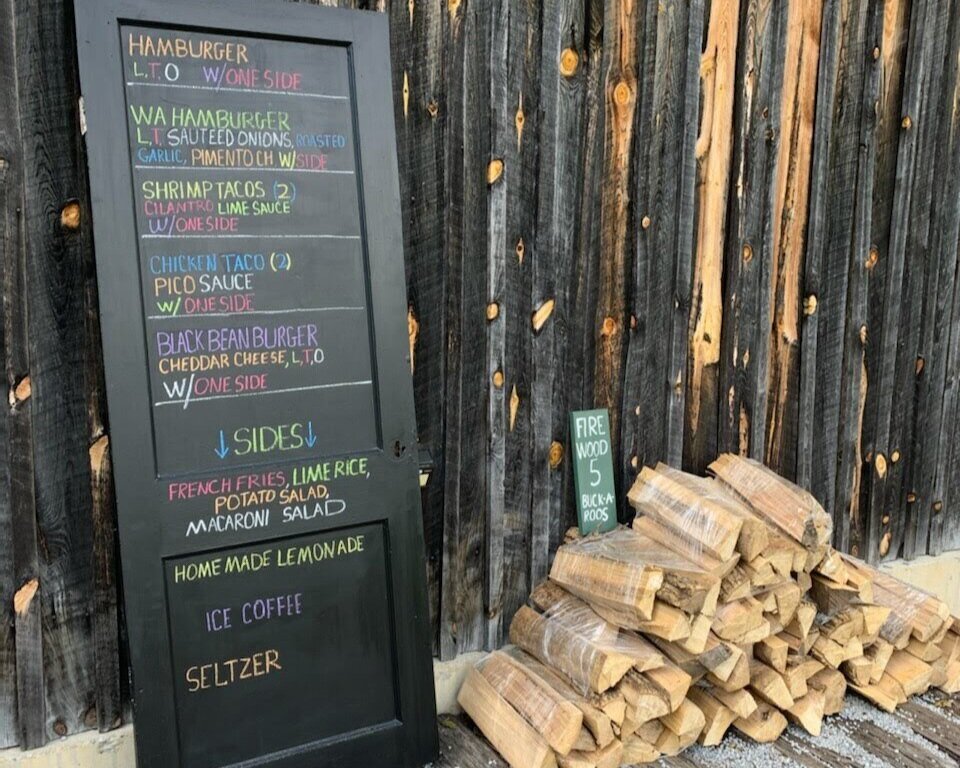 HAMBURGER
L,T,O W/ONE SIDE
WA HAMBURGER
L,T, SAUTEED ONIONS, ROASTED
GARLIC, PIMENTO CH W/SIDE
SHRIMP TACOS (2)
CILANTRO LIME SAUCE
W/ONE SIDE
CHICKEN TACO (2)
PICO SAUCE
W/ ONE SIDE
BLACK BEAN BURGER
CHEDDAR CHEESE, L,T,O
W/ONE SIDE
↓SIDES↓
FRENCH FRIES, LIME RICE,
POTATO SALAD,
MACARONI SALAD
HOMEMADE LEMONADE
ICE COFFEE
SELTZER
FIRE
WOOD
5
BUCK-A-
ROOS